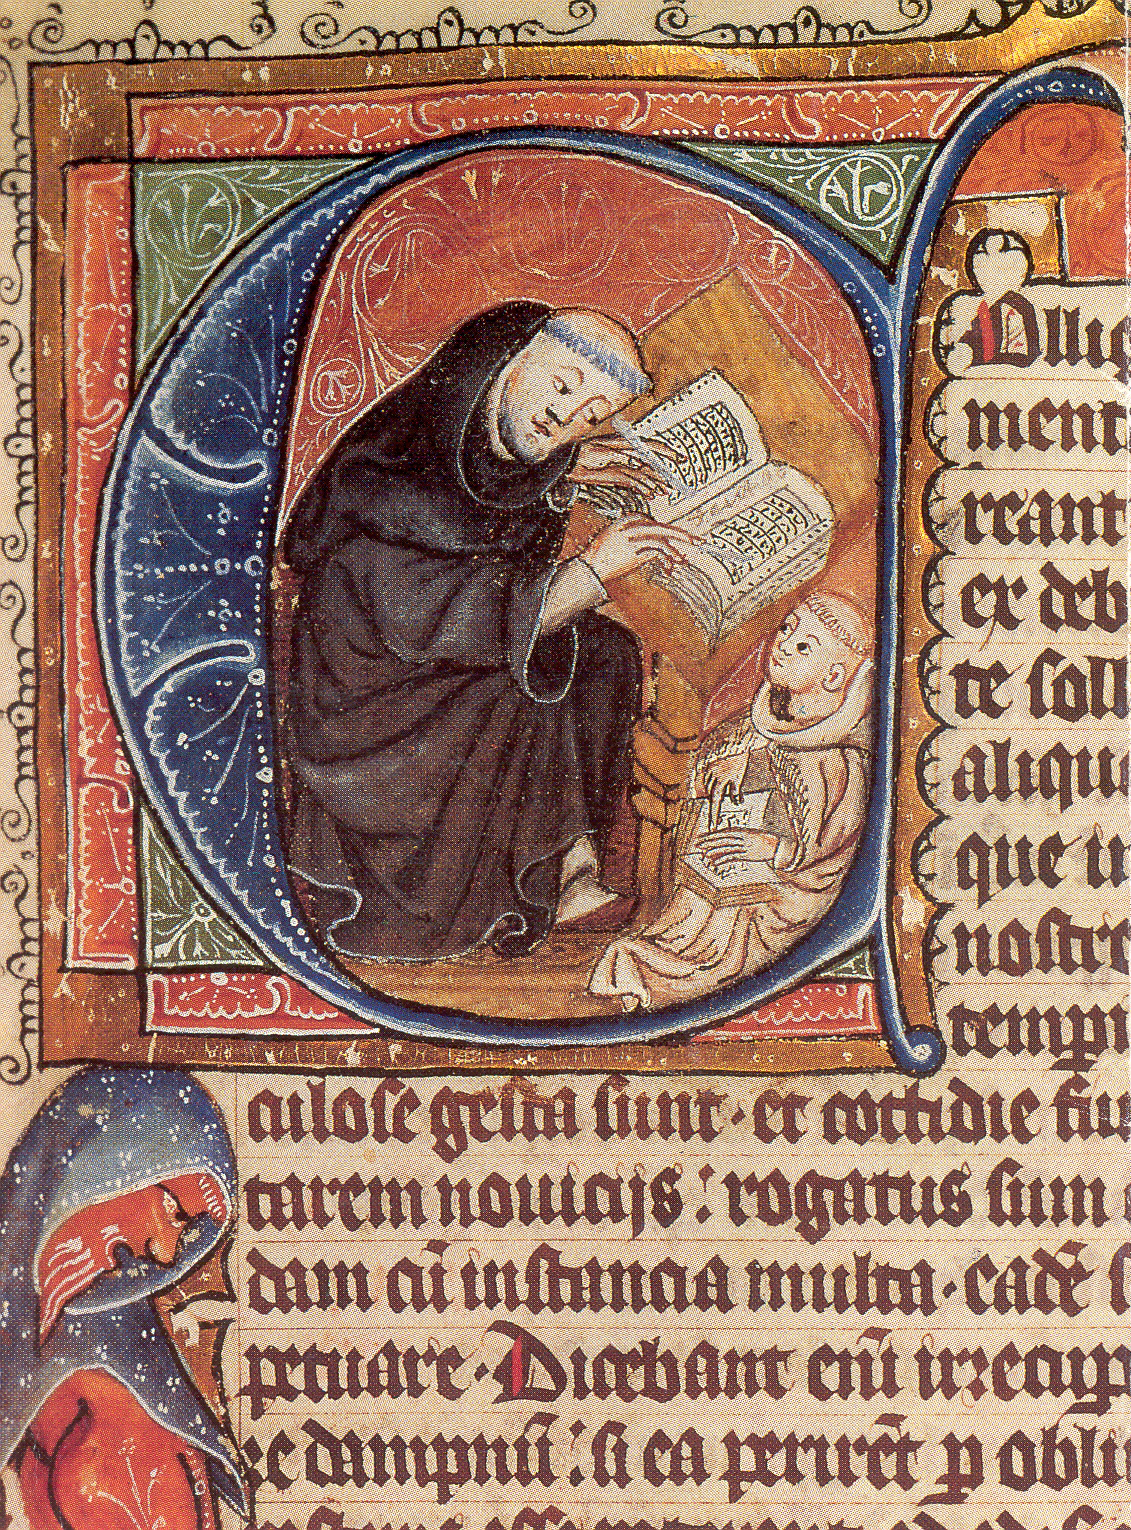 Ollig
ment
reant
ex deb
te soll
aliqu
que i
nostr
temp
culose gesta sunt · et cottidie fiu
tarem nouicijs : rogatus sum
dam cū instancia multa · eadē s
petuare · Dicebant enī irrecup
dampnū : si ea perirēt p obliu